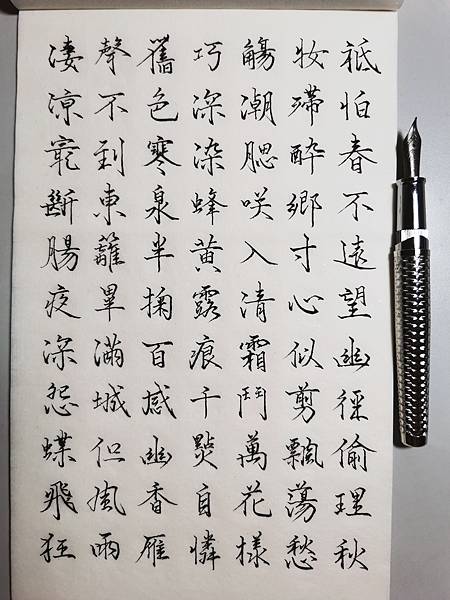 祗怕春不遠望幽徑偷理秋
妝殢醉鄉寸心似剪飄蕩愁
觴潮腮咲入清霜鬥萬花樣
巧深染蜂黃露痕千點自憐
舊色寒泉半掬百感幽香雁
聲不到東籬畢滿城但風雨
淒涼最斷腸夜深怨蝶飛狂